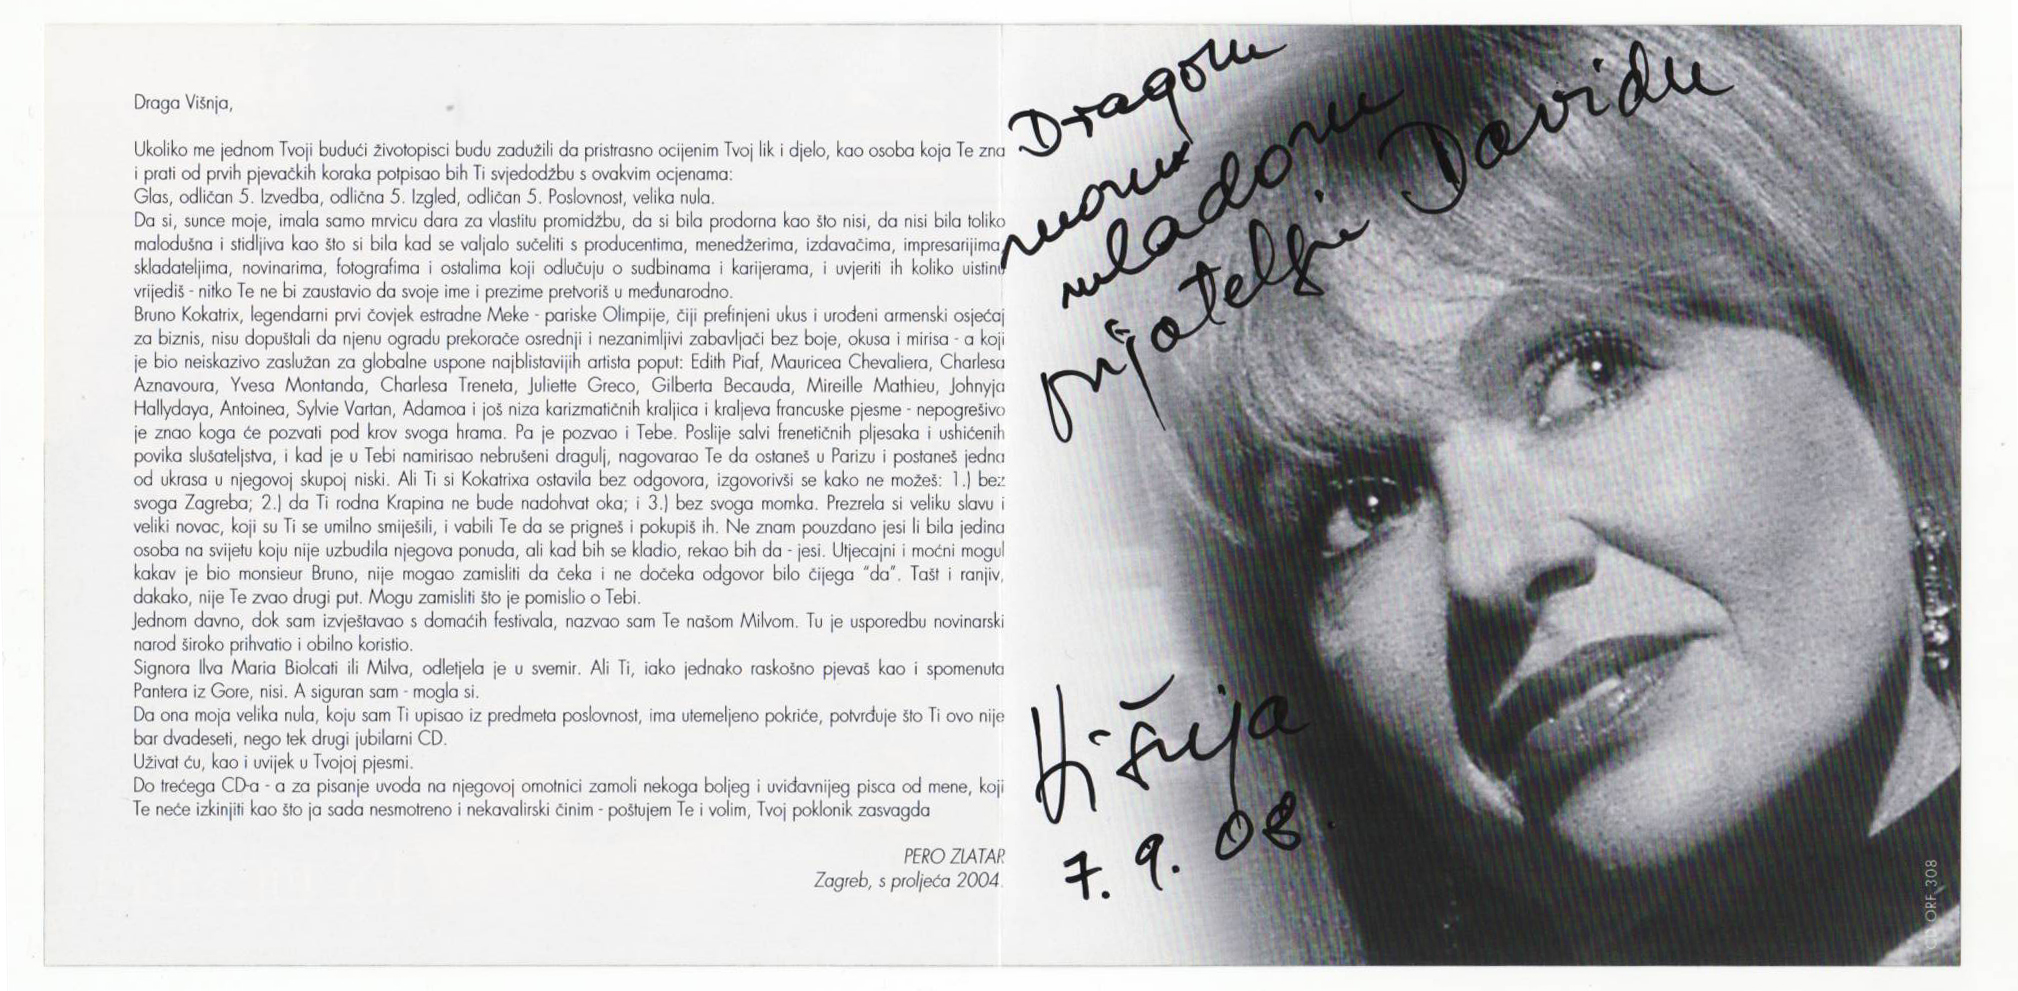 Draga Višnja,
Ukoliko me jednom Tvoji budući životopisci budu zadužili da pristrasno ocijenim Tvoj lik i djelo, kao osoba koja Te zna
i prati od prvih pjevačkih koraka potpisao bih Ti svjedodžbu s ovakvim ocjenama:
Glas, odličan 5. Izvedba, odlična 5. Izgled, odličan 5. Poslovnost, velika nula.
Da si, sunce moje, imala samo mrvicu dara za vlastitu promidžbu, da si bila prodorna kao što nisi, da nisi bila toliko
malodušna i stidljiva kao što si bila kad se valjalo sučeliti s producentima, menedžerima, izdavačima, impresarijima,
skladateljima, novinarima, fotografima i ostalima koji odlučuju o sudbinama i karijerama, i uvjeriti ih koliko uistinu
vrijediš - nitko Te ne bi zaustavio da svoje ime i prezime pretvoriš u međunarodno.
Bruno Kokatrix, legendarni prvi čovjek estradne Meke - pariske Olimpije, čiji prefinjeni ukus i urođeni armenski osjećaj
za biznis, nisu dopuštali da njenu ogradu prekorače osrednji i nezanimljivi zabavljači bez boje, okusa i mirisa - a koji
je bio neiskazivo zaslužan za globalne uspone najblistavijih artista poput: Edith Piaf, Mauricea Chevaliera, Charlesa
Aznavoura, Yvesa Montanda, Charlesa Treneta, Juliette Greco, Gilberta Becauda, Mireille Mathieu, Johnyja
Hallydaya, Antoinea, Sylvie Vartan, Adamoa i još niza karizmatičnih kraljica i kraljeva francuske pjesme - nepogrešivo
je znao koga će pozvati pod krov svoga hrama. Pa je pozvao i Tebe. Poslije salvi frenetičnih pljesaka i ushićenih
povika slušateljstva, i kad je u Tebi namirisao nebrušeni dragulj, nagovarao Te da ostaneš u Parizu i postaneš jedna
od ukrasa u njegovoj skupoj niski. Ali Ti si Kokatrixa ostavila bez odgovora, izgovorivši se kako ne možeš: 1.) bez
svoga Zagreba; 2.) da Ti rodna Krapina ne bude nadohvat oka; i 3.) bez svoga momka. Prezrela si veliku slavu i
veliki novac, koji su Ti se umilno smiješili, i vabili Te da se prigneš i pokupiš ih. Ne znam pouzdano jesi li bila jedina
osoba na svijetu koju nije uzbudila njegova ponuda, ali kad bih se kladio, rekao bih da - jesi. Utjecajni i moćni mogul
kakav je bio monsieur Bruno, nije mogao zamisliti da čeka i ne dočeka odgovor bilo čijega “da”. Tašt i ranjiv,
dakako, nije Te zvao drugi put. Mogu zamisliti što je pomislio o Tebi.
Jednom davno, dok sam izvještavao s domaćih festivala, nazvao sam Te našom Milvom. Tu je usporedbu novinarski
narod široko prihvatio i obilno koristio.
Signora Ilva Maria Biolcati ili Milva, odletjela je u svemir. Ali Ti, iako jednako raskošno pjevaš kao i spomenuta
Pantera iz Gore, nisi. A siguran sam - mogla si.
Da ona moja velika nula, koju sam Ti upisao iz predmeta poslovnost, ima utemeljeno pokriće, potvrđuje što Ti ovo nije
bar dvadeseti, nego tek drugi jubilarni CD.
Uživat ću, kao i uvijek u Tvojoj pjesmi.
Do trećega CD-a - a za pisanje uvoda na njegovoj omotnici zamoli nekoga boljeg i uviđavnijeg pisca od mene, koji
Te neće izkinjiti kao što ja sada nesmotreno i nekavalirski činim - poštujem Te i volim, Tvoj poklonik zasvagda
PERO ZLATAR
Zagreb, s proljeća 2004.
Dragom
momx
mladom
prijatelju Davidu
Višnja
7. 9. 08.
CD ORF 308